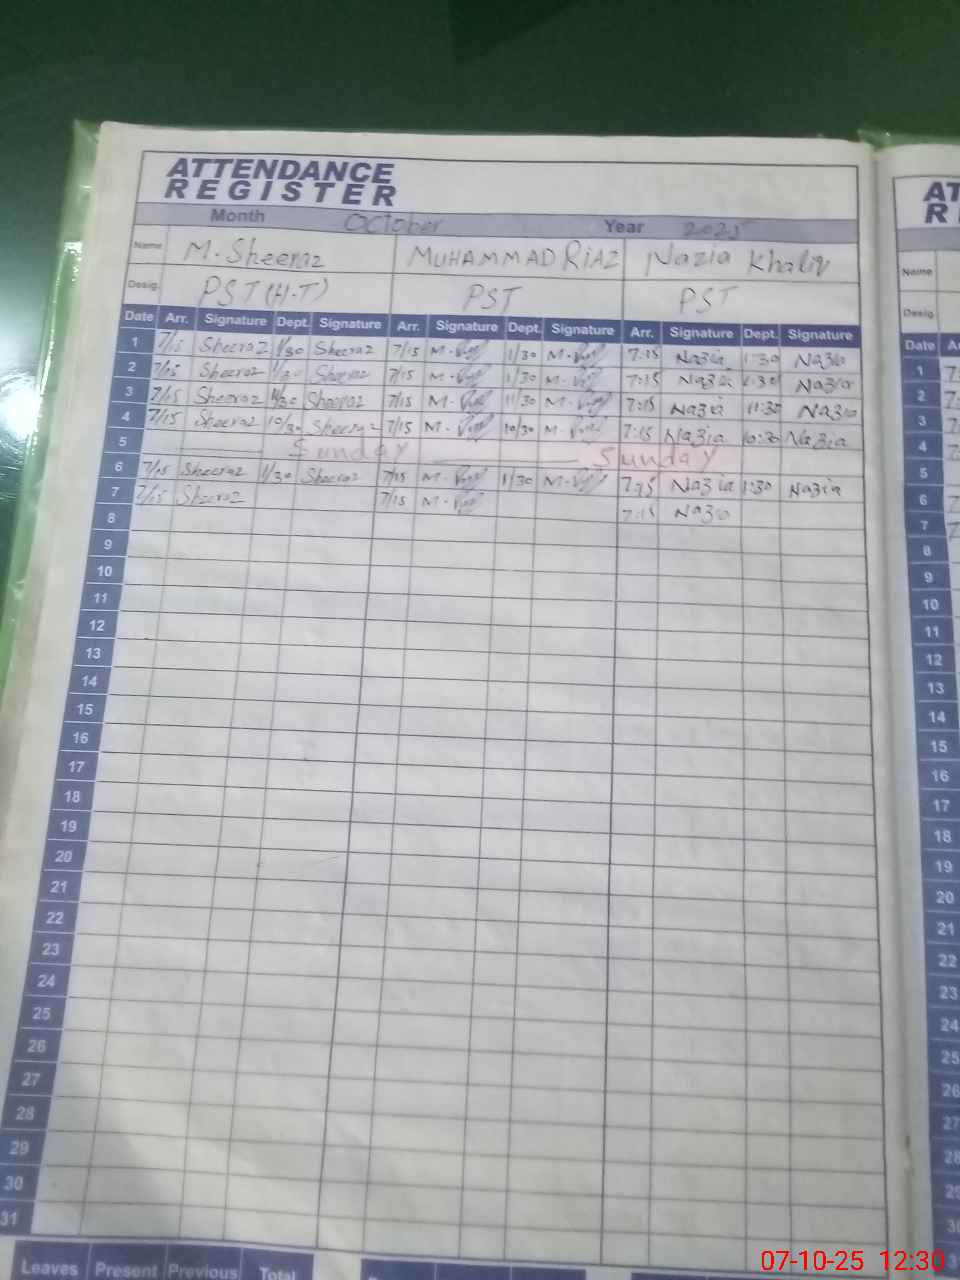 ATTENDANCE
REGISTER
Month October Year 2025
Name M. Sheeraz MUHAMMAD RIAZ Nazia Khaliq
Desig. PST (H-T) PST PST
Date Arr. Signature Dept. Signature Arr. Signature Dept. Signature Arr. Signature Dept. Signature
1 7/15 Sheeraz 1/30 Sheeraz 7/15 M- 1/30 M- 7:15 Nazia 1:30 Nazia
2 7/15 Sheeraz 1/30 Sheeraz 7/15 M- 1/30 M- 7:15 Nazia 1:30 Nazia
3 7/15 Sheeraz 11/30 Sheeraz 7/15 M- 11/30 M- 7:15 Nazia 11:30 Nazia
4 7/15 Sheeraz 10/30 Sheeraz 7/15 M- 10/30 M- 7:15 Nazia 10:30 Nazia
5 Sunday Sunday
6 7/15 Sheeraz 1/30 Sheeraz 7/15 M- 1/30 M- 7:15 Nazia 1:30 Nazia
7 7/15 Sheeraz 7/15 M- 7:15 Nazia
8
9
10
11
12
13
14
15
16
17
18
19
20
21
22
23
24
25
26
27
28
29
30
31
Leaves Present Previous Total
AT
R
Name
Desig.
Date
1
2
3
4
5
6
7
8
9
10
11
12
13
14
15
16
17
18
19
20
21
22
23
24
25
26
27
28
29
07-10-25 12:30